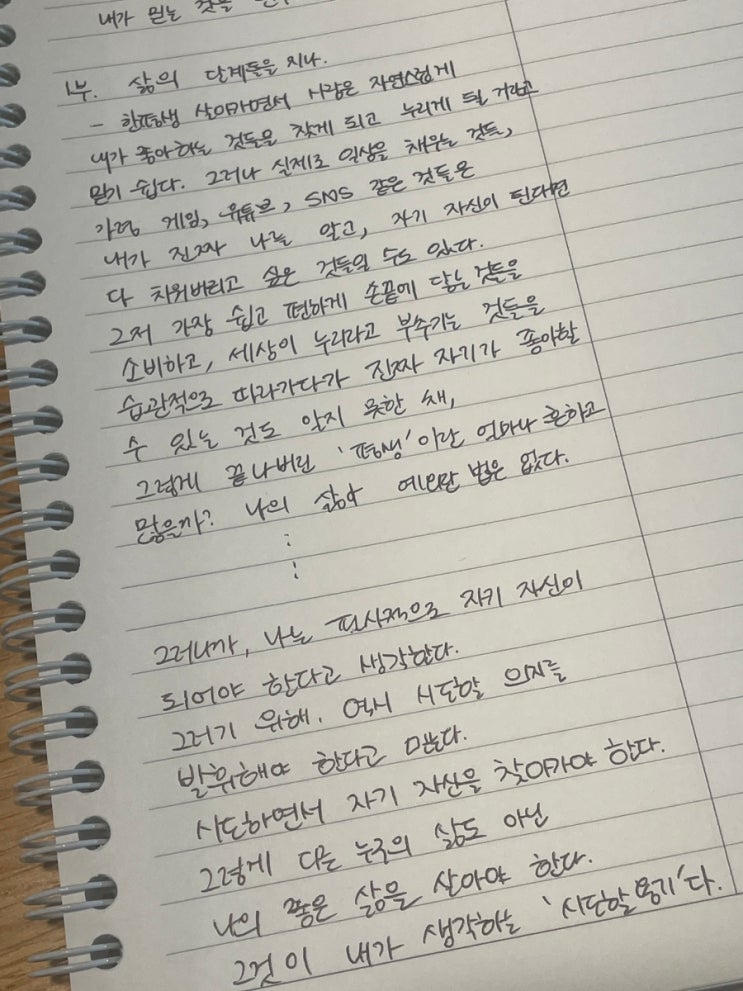 내가 믿는 것을
1부. 삶의 단계들을 지나.
- 한평생 살아가면서 사람은 자연스럽게
내가 좋아하는 것들을 찾게 되고 누리게 될 거라고
믿기 쉽다. 그러나 실제로 일상을 채우는 것들,
가령 게임, 유튜브, SNS 같은 것들은
내가 진짜 나를 알고, 자기 자신이 된다면
다 치워버리고 싶은 것들일 수도 있다.
그저 가장 쉽고 편하게 손끝에 닿는 것들을
소비하고, 세상이 누리라고 부추기는 것들을
습관적으로 따라가다가 진짜 자기가 좋아할
수 있는 것도 알지 못한 채,
그렇게 끝나버린 '평생'이란 얼마나 흔하고
많을까? 나의 삶이라 예외란 법은 없다.
:
:
그러니까, 나는 필사적으로 자기 자신이
되어야 한다고 생각한다.
그러기 위해, 역시 시도할 의지를
발휘해야 한다고 믿는다.
시도하면서 자기 자신을 찾아가야 한다.
그렇게 다른 누구의 삶도 아닌
나의 좋은 삶을 살아야 한다.
그것이 내가 생각하는 '시도할 용기'다.